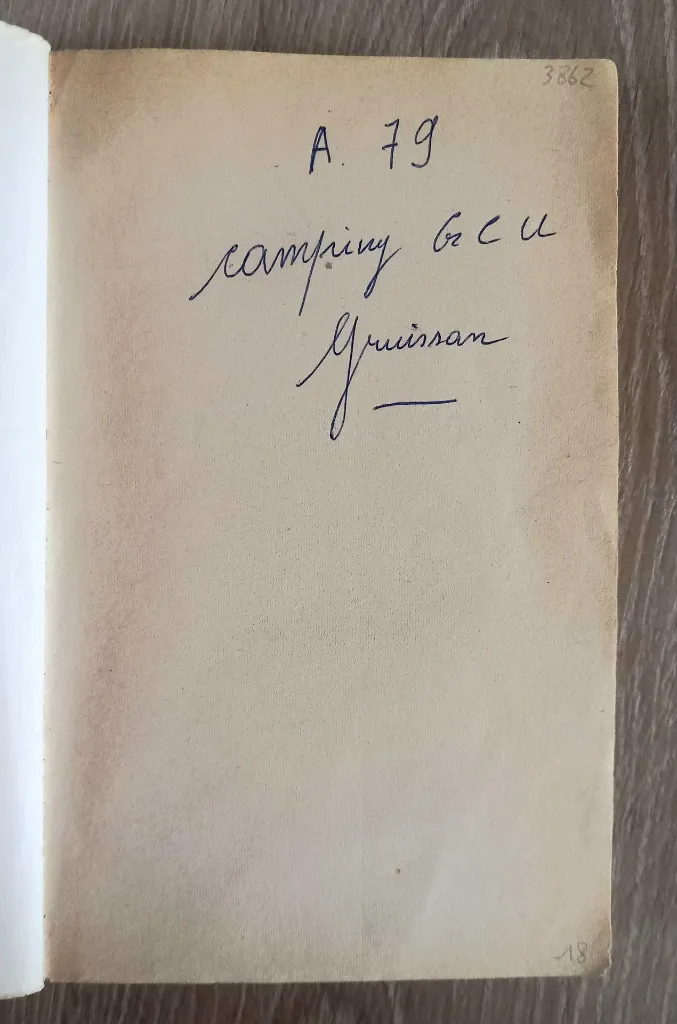 3862
A. 79
camping GCU
Gruissan
18